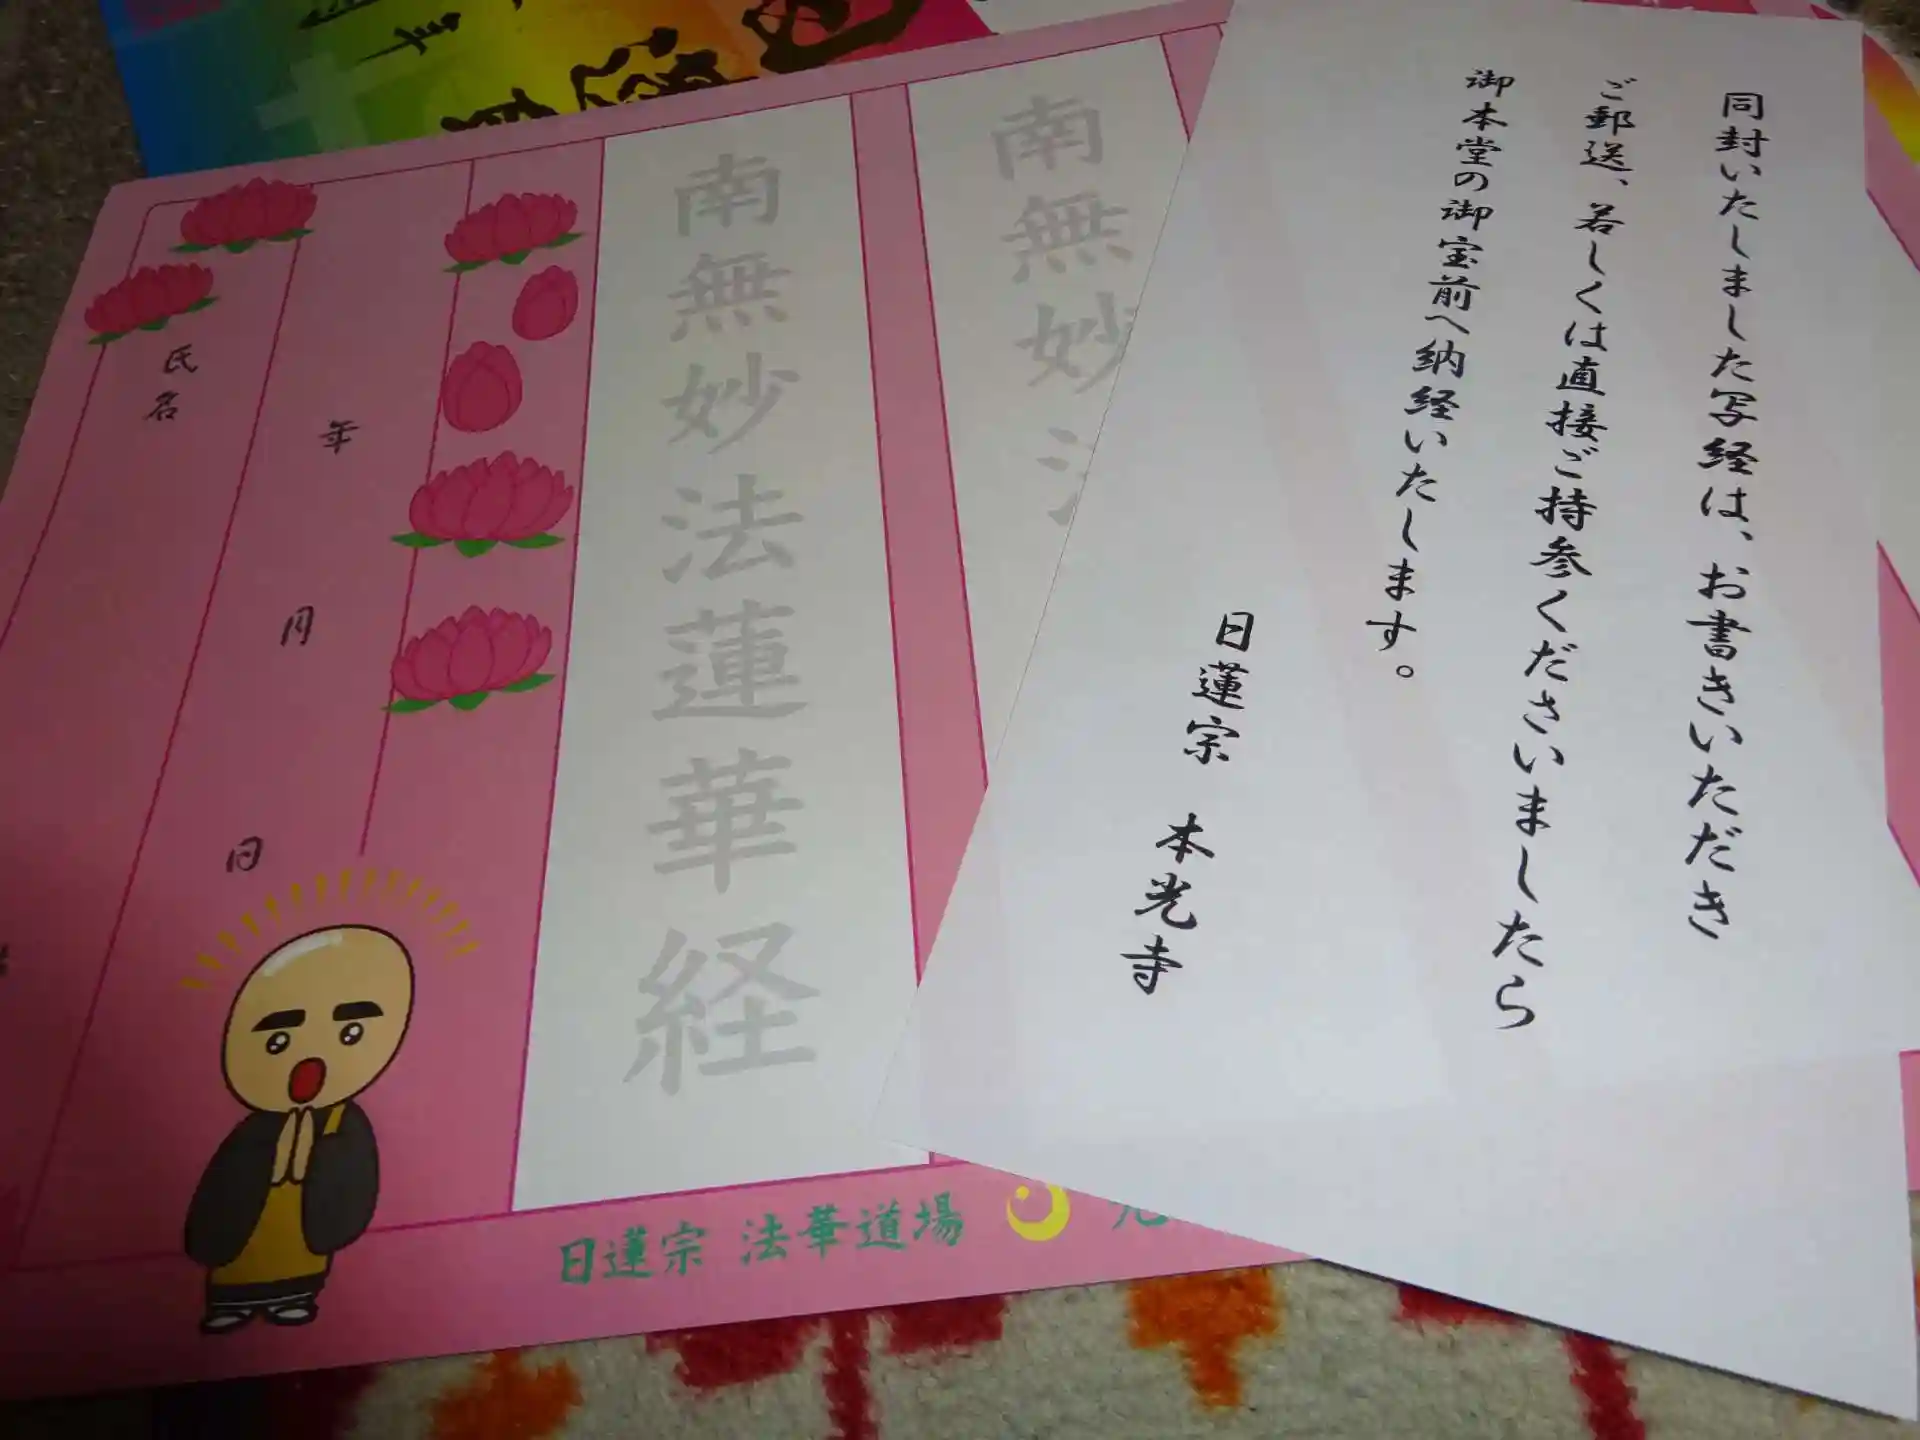 同封いたしました写経は、お書きいただき
ご郵送、若しくは直接ご持参くださいましたら
御本堂の御宝前へ納経いたします。
日蓮宗 本光寺
南無妙法
南無妙法蓮華経
年 月 日
氏名
日蓮宗 法華道場